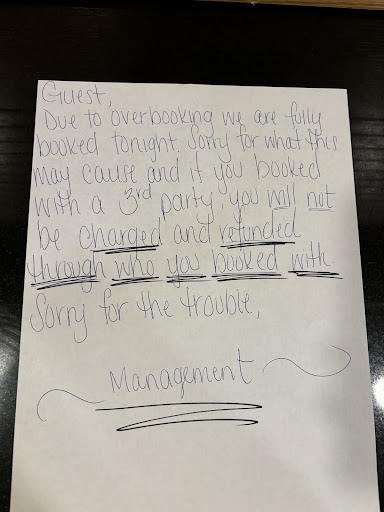 Guest,
Due to overbooking we are fully
booked tonight. Sorry for what this
may cause and if you booked
with a 3rd party, you will not
be charged and refunded
through who you booked with.
Sorry for the trouble,
Management